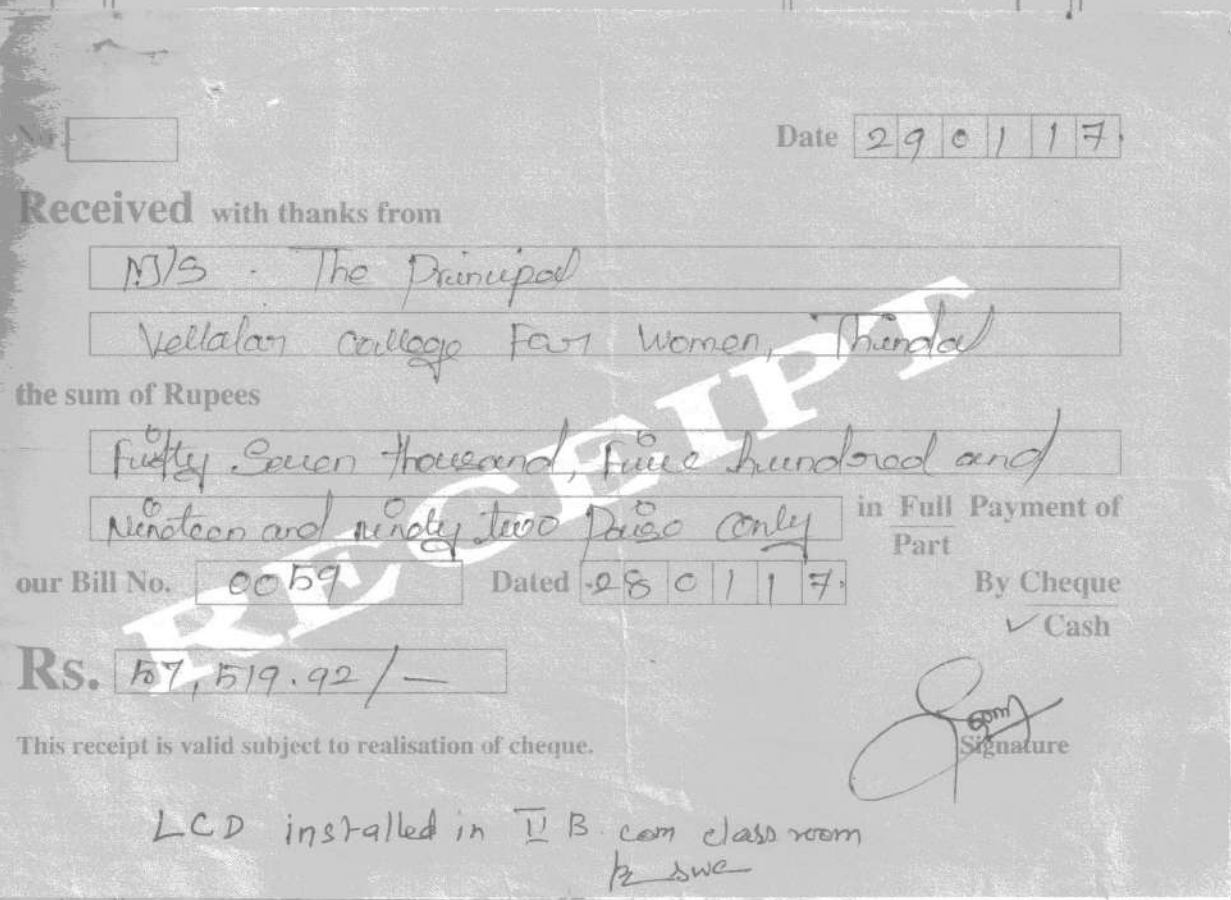 No.
Date 290117
Received with thanks from
M/S. The Principal
Vellalar College For Women, Thindal
the sum of Rupees
Fifty Seven thousand, Five hundred and
Nineteen and ninety two Paise only in Full Payment of
Part
our Bill No. 0059 Dated 280117 By Cheque
✓ Cash
Rs. 57,519.92/-
This receipt is valid subject to realisation of cheque.
Signature
LCD installed in II B.com class room
RECEIPT